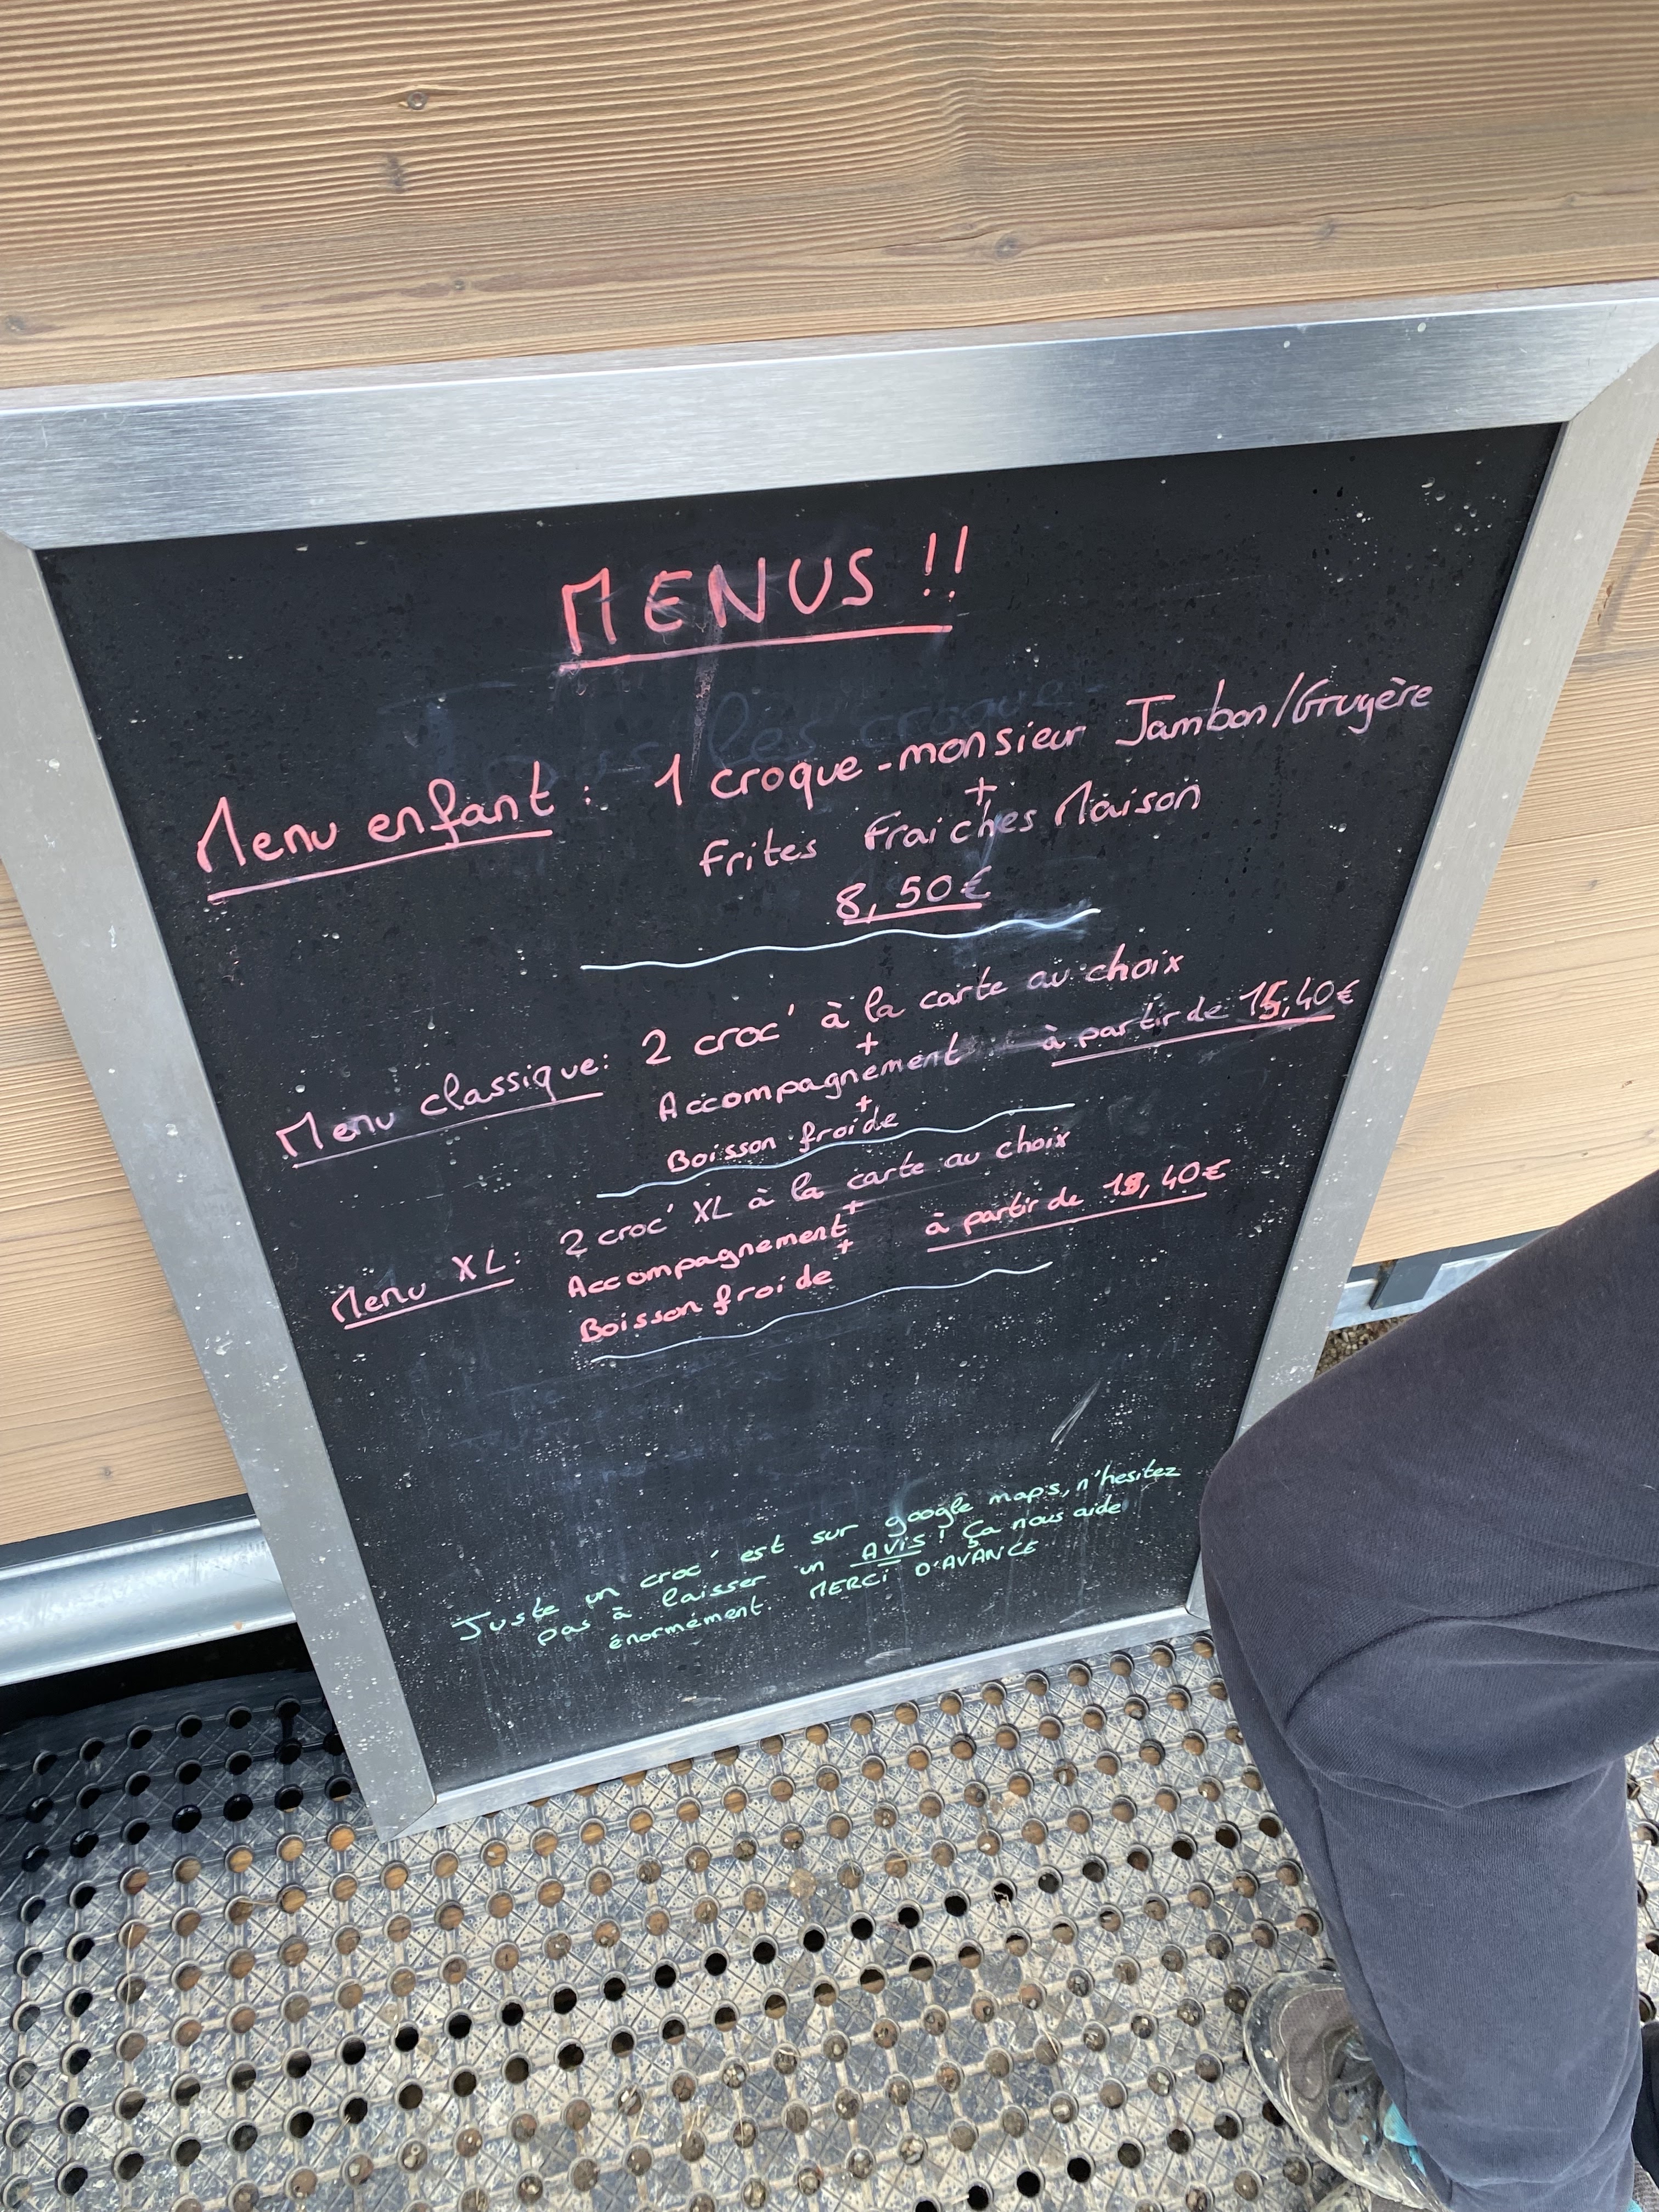 MENUS !!
Menu enfant : 1 croque-monsieur Jambon/Gruyère
+
Frites Fraiches Maison
8,50€
Menu classique: 2 croc' à la carte au choix
+
Accompagnement à partir de 15,40€
+
Boisson froide
Menu XL: 2 croc' XL à la carte au choix
+
Accompagnement à partir de
+
Boisson froide
Juste un croc' est sur google maps, n'hesitez
pas à laisser un AVIS! Ça nous aide
énormément. MERCI D'AVANCE